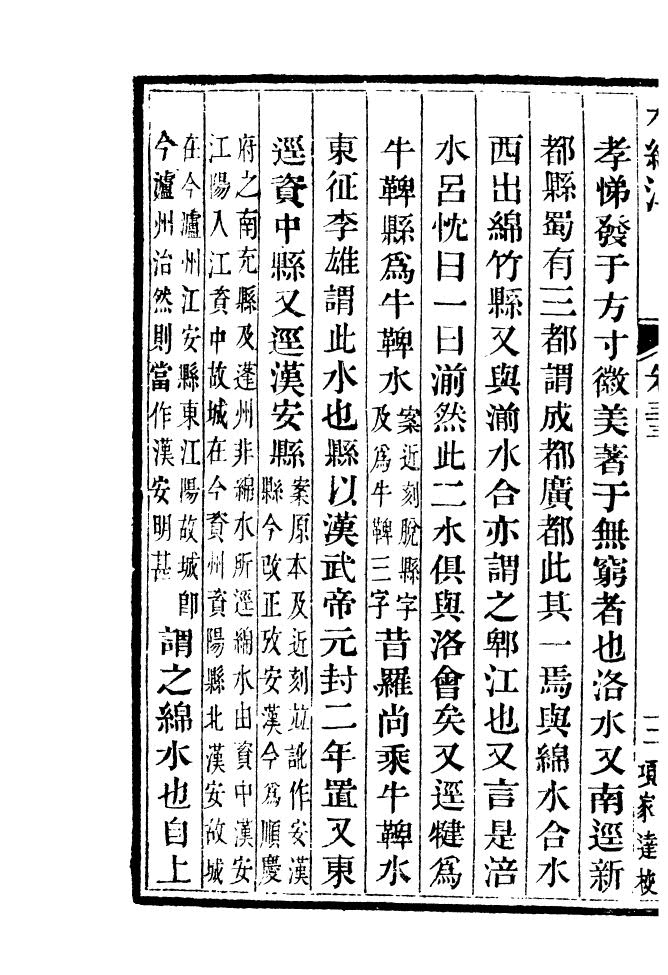 水經注 卷三十三 三 項家達校
孝悌發于方寸徽美著于無窮者也洛水又南逕新
都縣蜀有三都謂成都廣都此其一焉與綿水合水
西出綿竹縣又與湔水合亦謂之郫江也又言是涪
水呂忱曰一曰湔然此二水俱與洛會矣又逕犍爲
牛鞞縣爲牛鞞水案近刻脫縣字及爲牛鞞三字昔羅尚乘牛鞞水
東征李雄謂此水也縣以漢武帝元封二年置又東
逕資中縣又逕漢安縣案原本及近刻竝訛作安漢縣今改正攷安漢今爲順慶
府之南充縣及蓬州非綿水所逕綿水由資中漢安江陽入江資中故城在今資州資陽縣北漢安故城
在今瀘州江安縣東江陽故城卽今瀘州治然則當作漢安明甚謂之綿水也自上